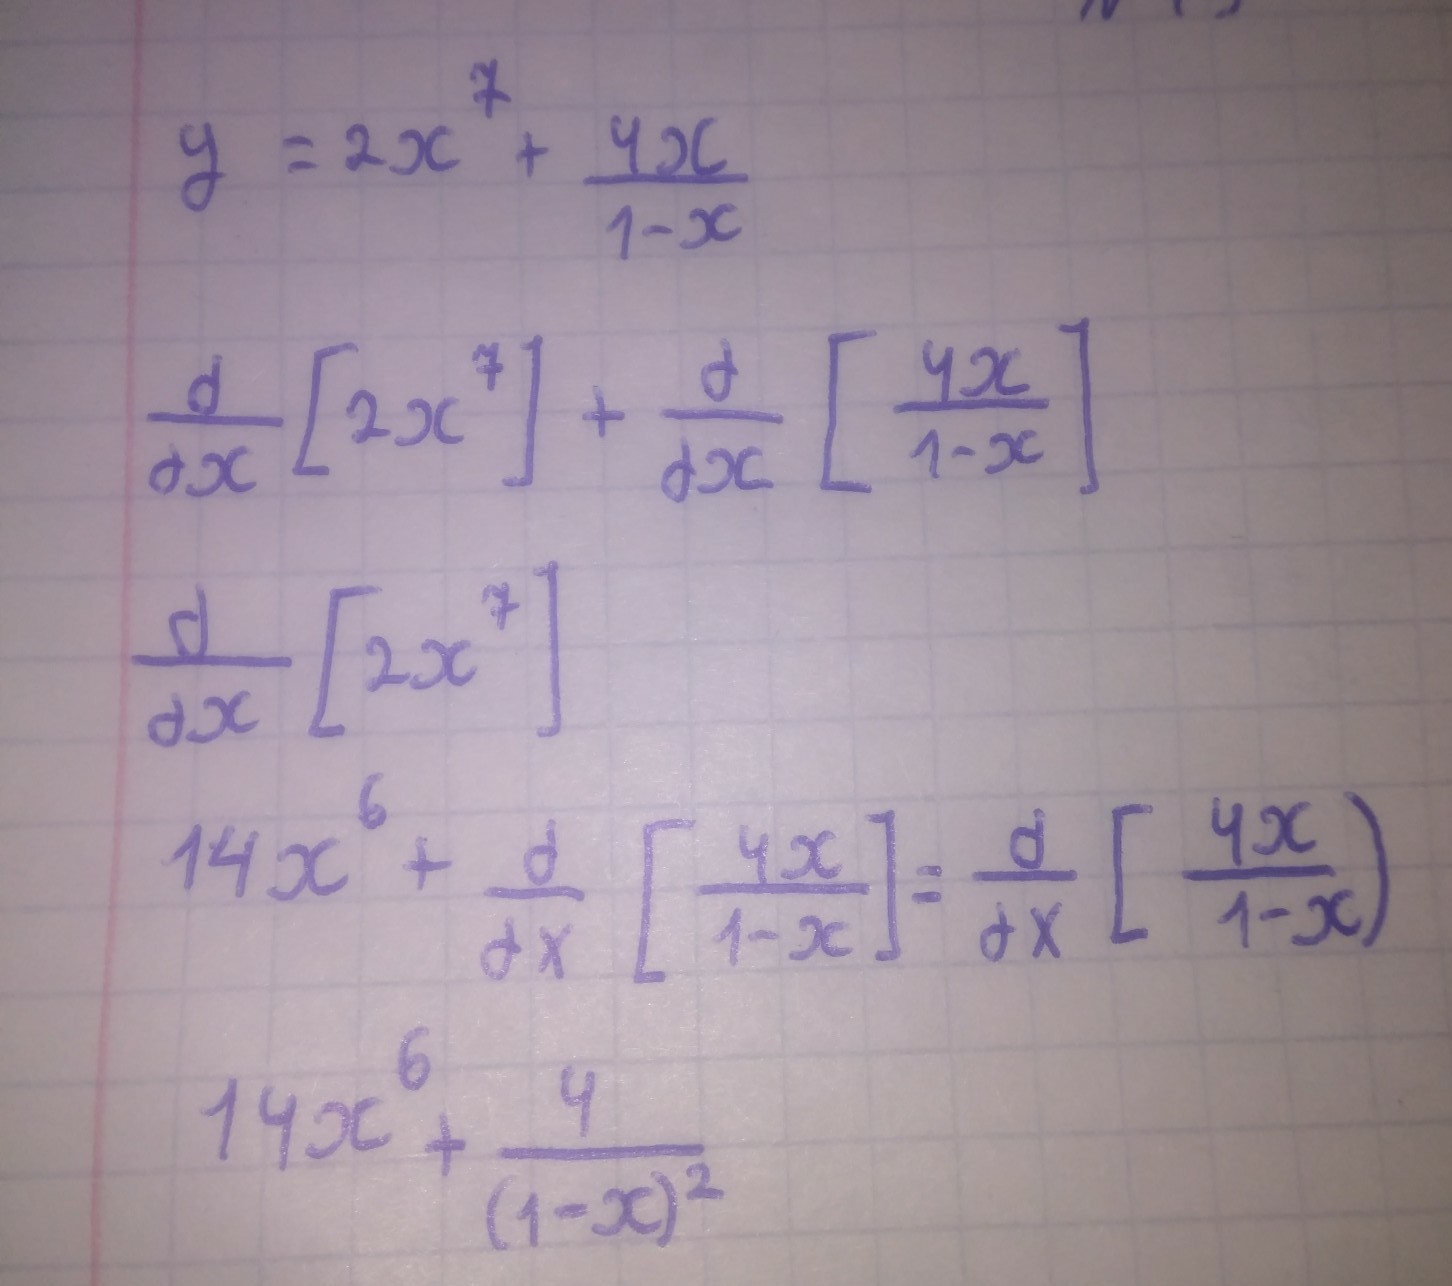 y = 2x^7 + 4x/(1-x)
d/dx [2x^7] + d/dx [4x/(1-x)]
d/dx [2x^7]
14x^6 + d/dx [4x/(1-x)] = d/dx [4x/(1-x))
14x^6 + 4/(1-x)^2